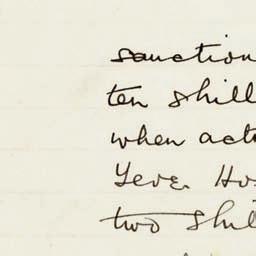 sanction
ten shill
when act
two shil